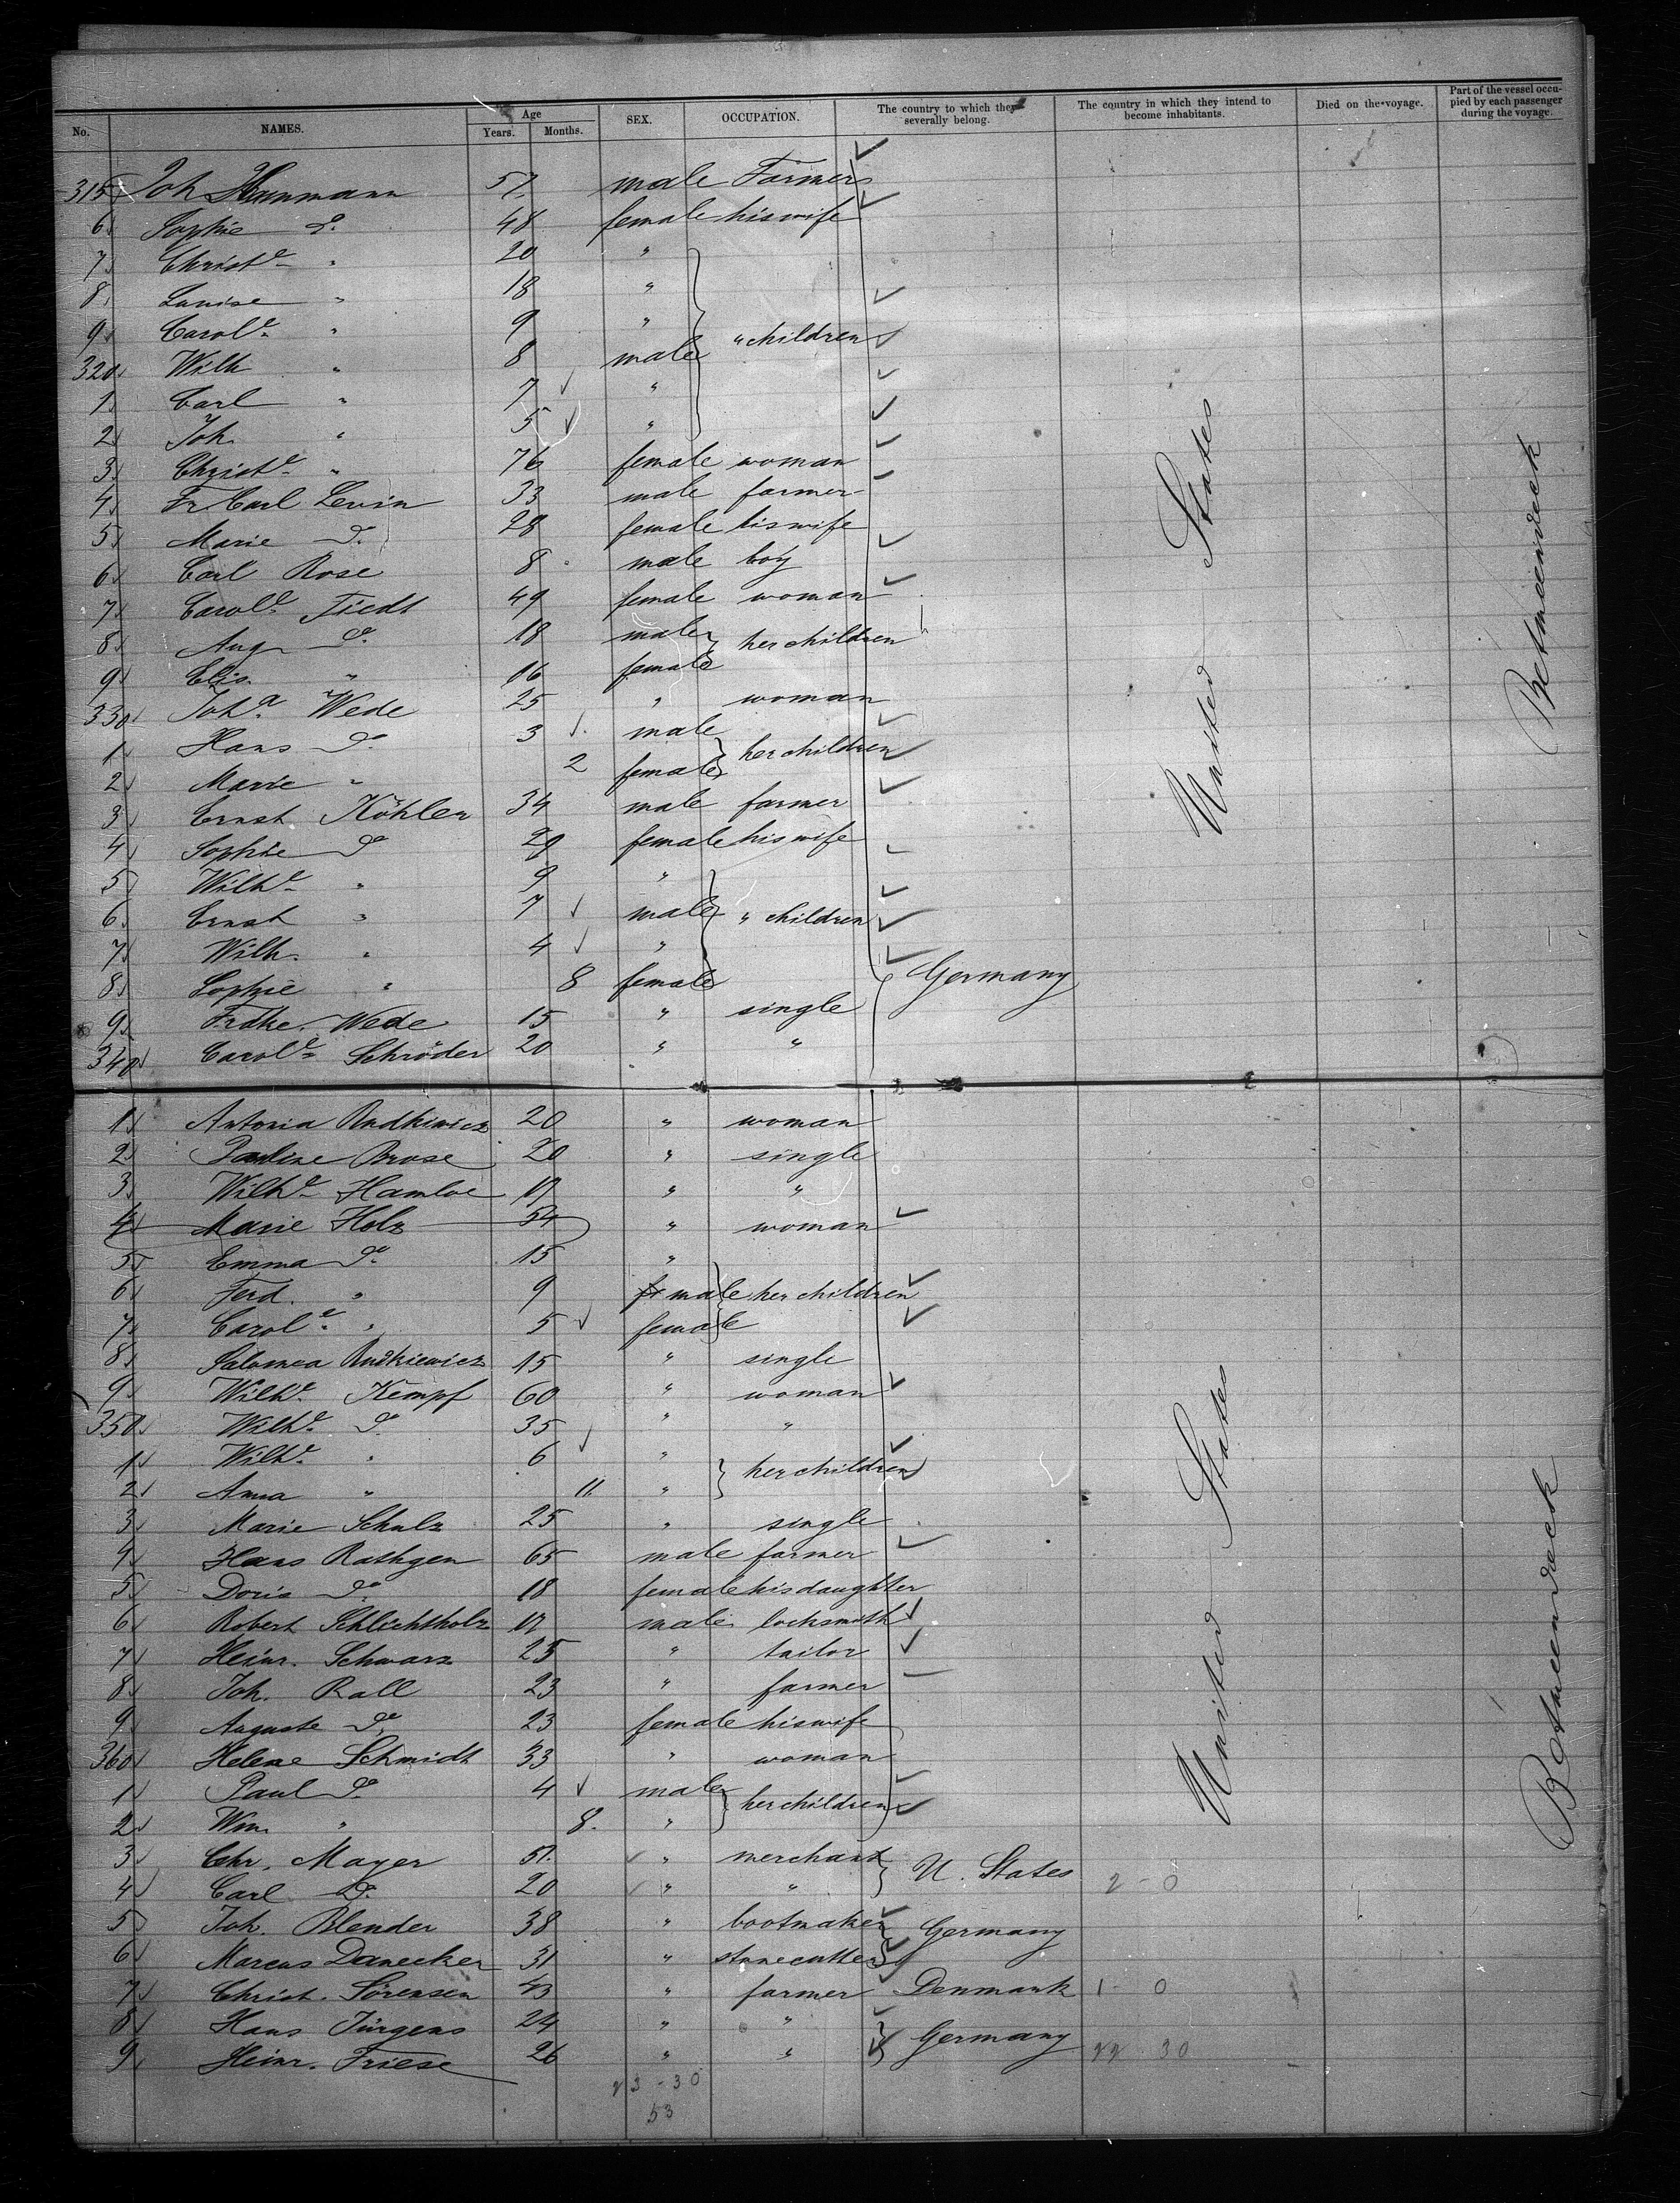 No. NAMES. Age Years. Months. SEX. OCCUPATION. The country to which they severally belong. The country in which they intend to become inhabitants. Died on the voyage. Part of the vessel occupied by each passenger during the voyage.
315 Joh 57 male Farmer
6 Sophie do. 48 female his wife
7 Christe " 20 "
8 Louise " 18 "
9 Carole " 9 " " children
320 Wilh " 8 male
1 Carl " 7 "
2 Joh. " 5 "
3 Christe " 76 female woman
4 Fr. Carl Levin 33 male farmer
5 Marie do. 28 female his wife
6 Carl Rose 8 male boy
7 Carole Tiedt 49 female woman
8 Aug do. 18 male her children
9 Elis. " 16 female
330 Joha Wede 25 " woman
1 Hans do. 3 male her children
2 Marie " 2 female
3 Ernst Köhler 34 male farmer
4 Sophie do 29 female his wife
5 Wilhe " 9 "
6 Ernst " 7 male " children
7 Wilh. " 4 "
8 Sophie " 8 female Germany
9 Fridke. Wede 15 " single
340 Carole Schröder 20 " "
United States
1 Antonia Rudkiewicz 20 " woman
2 Pauline Brose 20 " single
3 Wilhe 17 " "
4 Marie Holz 54 " woman
5 Emma do 15 "
6 Ferd. " 9 male her children
7 Carole " 5 female
8 Salomea Rudkiewicz 15 " single
9 Wilhe. Kempf 60 " woman
350 Wilhe. do 35 " "
1 Wilhe. " 6 " her children
2 Anna " 11 "
3 Marie Schulz 25 " single
4 Hans Rathgen 65 male farmer
5 Doris do. 18 female his daughter
6 Robert Schlichtholz 17 male locksmith
7 Heinr. Schwarz 25 " tailor
8 Joh. Rall 23 " farmer
9 Auguste do. 23 female his wife
360 Helene Schmidt 33 " woman
1 Paul do. 4 male her children
2 Wm. " 8 "
3 Chr. Mayer 51 " merchant U. States
4 Carl do. 20 " " 2 - 0
5 Joh. Blender 38 " bootmaker Germany
6 Marcus Danecker 31 " stonecutter
7 Christ. Sörensen 43 " farmer Denmark 1 - 0
8 Hans Jürgens 24 " " Germany
9 Heinr. Friese 26 " "
United States
Betweendeck
23 - 30
53